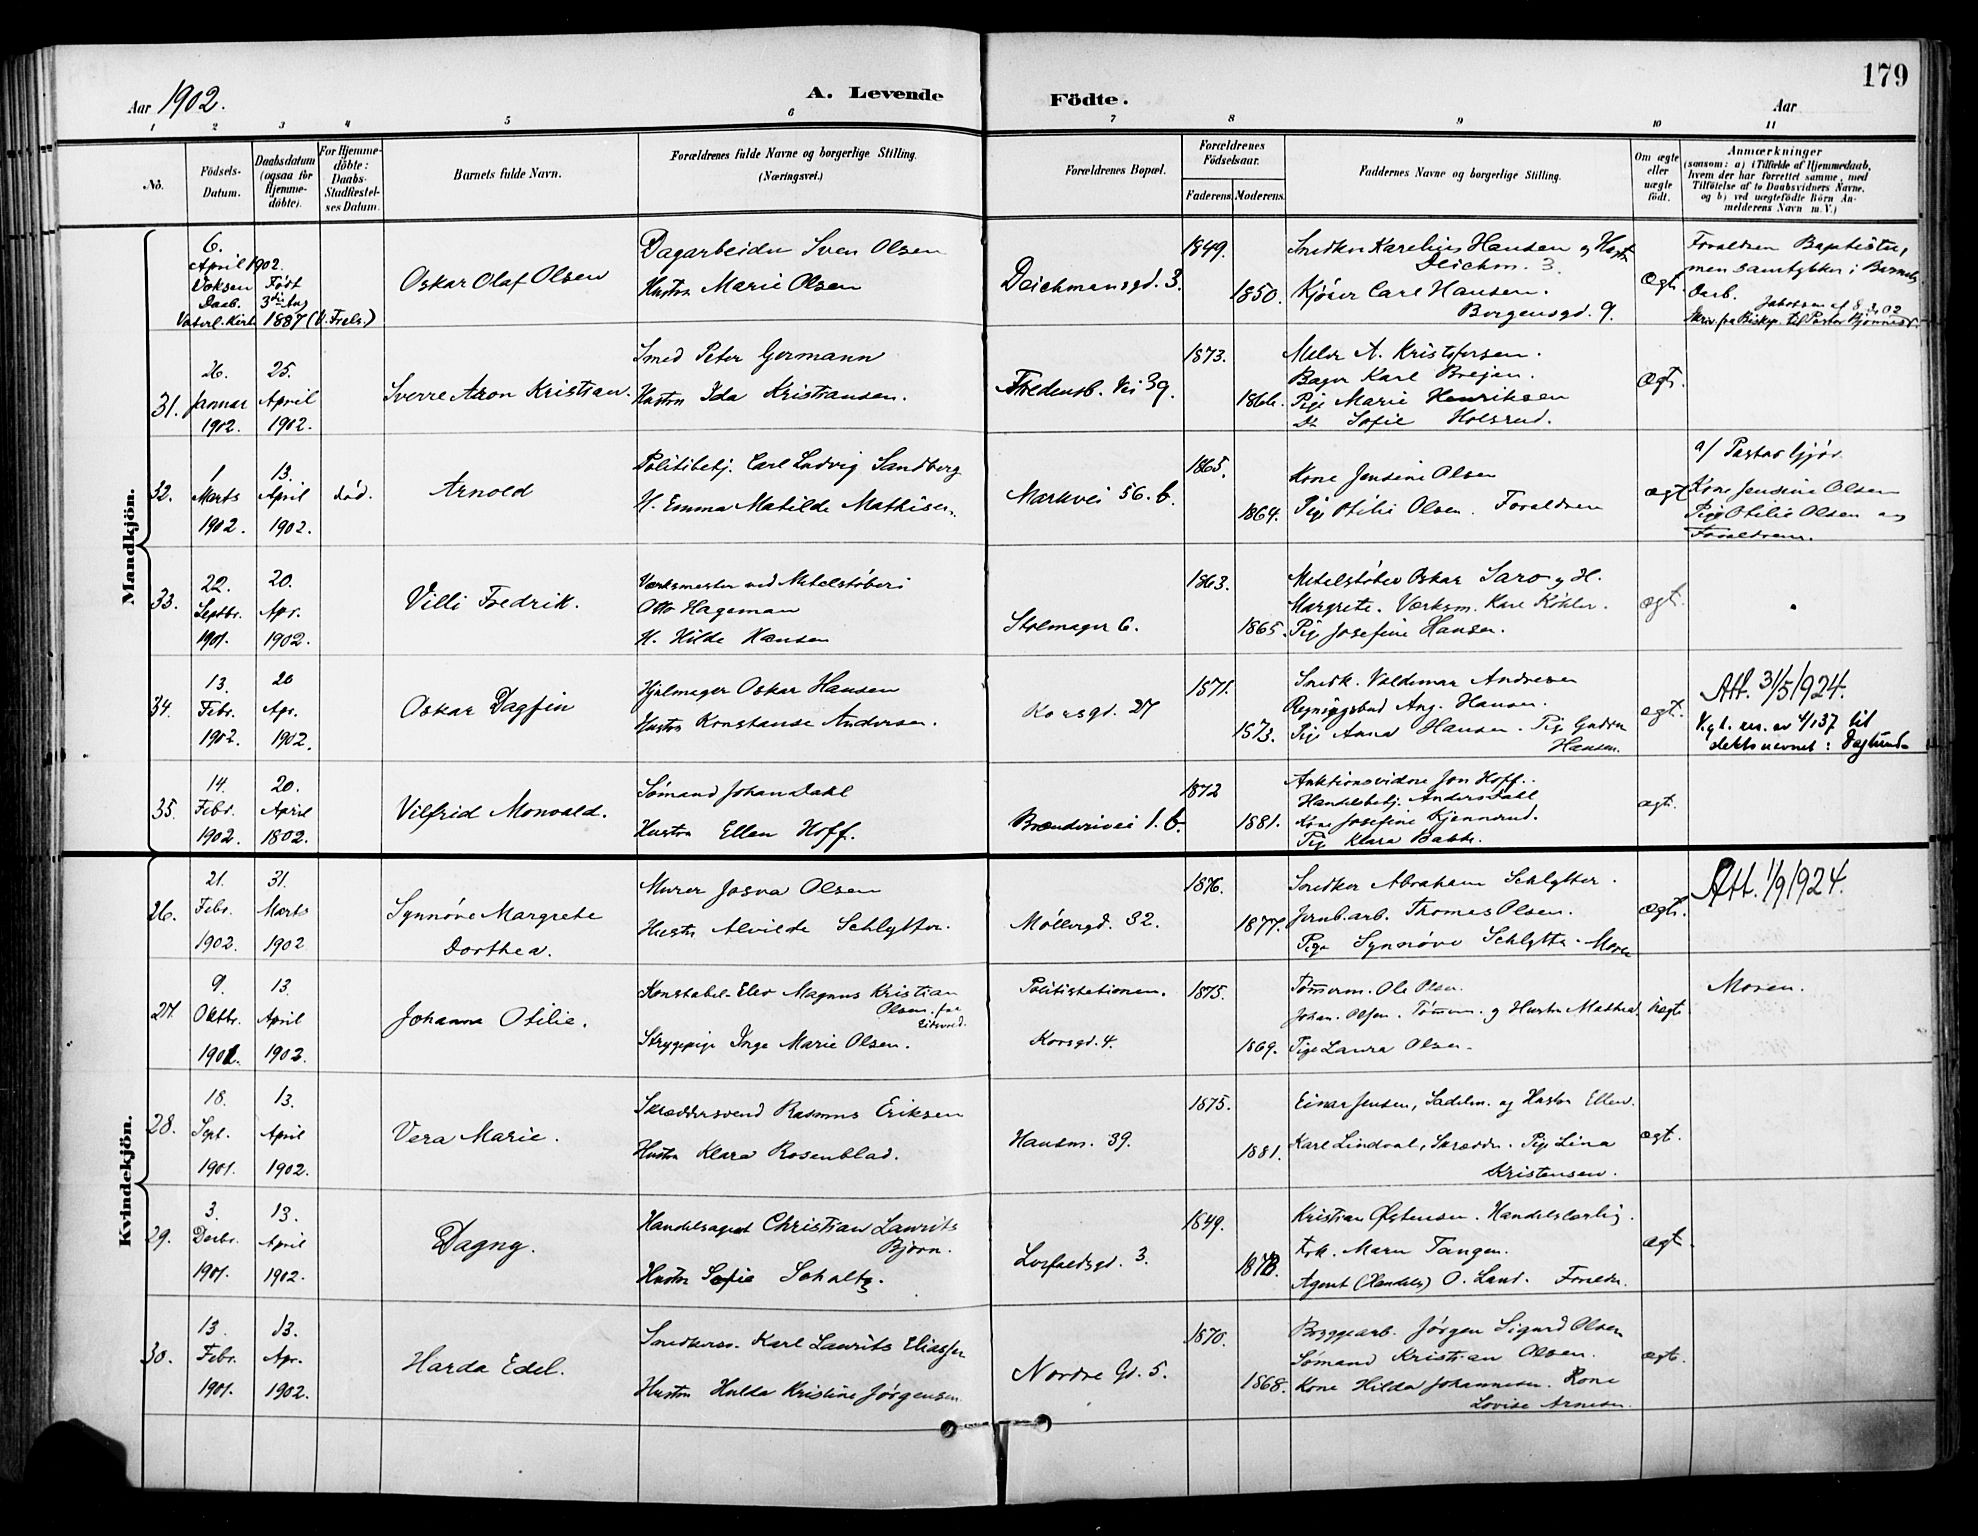 179
Aar 1902.
A. Levende Födte.
Aar
1 2 3 4 5 6 7 8 9 10 11
No.
Födsels-Datum.
Daabsdatum (ogsaa for Hjemme-döbte).
For Hjemme-döbte: Daabs-Stadfæstel-ses Datum.
Barnets fulde Navn.
Forældrenes fulde Navne og borgerlige Stilling.
(Næringsvei.)
Forældrenes Bopæl.
Forældrenes Födselsaar.
Faderens.
Moderens.
Faddernes Navne og borgerlige Stilling.
Om ægte eller uægte født.
Anmærkninger
(saasom: a) i Tilfælde af Hjemmedaab, hvem der har forrettet samme, med Tilföielse af to Daabsvidners Navne, og b) ved uægtefödte Börn An-melderens Navn m. V.)
Mandkjön.
6.
April 1902.
Voksen Født
Daab. 3die Aug
1887
Oskar Olaf Olsen
Dagarbeider Sven Olsen
Hustru Marie Olsen
Deichmansgd. 3.
1849.
1850.
Snedker Karelius Hansen og Hustr
Deichm. 3.
Kjører Carl Hansen.
Borgensgd. 9.
ægt.
Forældren Baptister,
men samtykker i Barnets
Daab.
31.
26. Januar 1902.
25. April 1902.
Sverre Aron Kristian.
Smed Peter Germann
Hustru Ida Kristiansen.
Fredensb. Vei 39.
1873.
1866.
Maler A. Kristofersen.
Bager Karl Brejen.
Pige Marie Henriksen
Do Sofie Holsrud.
ægt.
32.
1 Marts 1902.
13. April 1902.
død.
Arnold
Politibetj. Carl Ludvig Sandberg
H. Emma Matilde Mathisen.
Markvei 56. b.
1865.
1864.
Kone Jensine Olsen
Pige Otilie Olsen. Forældrene
ægt
a/ Pastor Gjør.
Kone Jensine Olsen
Pige Otilie Olsen og
Forældrene.
33.
22. Septbr. 1901.
20. Apr. 1902.
Villi Fredrik.
Værksmester ved Metalstøberi
Otto Hageman
H. Hilde Hansen
Stolmager 6.
1863.
1865.
Metalstøber Oskar Saro og H.
Margrete. Værksm. Karl Köhler.
Pige Josefine Hansen.
ægt.
34.
13. Febr. 1902
20 Apr. 1902.
Oskar Dagfin
Hjulmager Oskar Hansen
Hustru Konstanse Andersen.
Korsgd. 27
1871.
1873.
Snedk. Valdemar Andresen
Regningsbud Aug. Hansen.
Pige Anna Hansen. Pige Gudrun
Hansen.
ægt.
Att. 31/5 1924.
Kgl. res. av 4/1 37 til
dektsnavnet: Daglund
35.
14. Febr. 1902.
20. April 1802.
Vilfrid Monvald.
Sømand Johan Dahl
Hustru Ellen Hoff.
Brænderivei 1. b.
1872
1881.
Auktionsvidne Jon Hoff.
Handelsbetj. Anders Dahl
Kone Josefine Kjennerud.
Pige Klara Bakke.
ægt.
Kvindekjön.
26.
21. Febr. 1902.
31. Marts 1902
Synnøve Margrete
Dorthea.
Murer Josva Olsen
Hustr Alvilde Schlytter.
Møllergd. 32.
1876.
1877.
Snedker Abraham Schlytter.
Jernb.arb. Thomas Olsen.
Pige Synnøve Schlytter. Moren
ægt.
Att. 1/9 1924.
27.
9. Oktbr. 1901.
13. April 1902.
Johanna Otilie.
Konstabel-Elev Magnus Kristian
Olsen. fra
Eidsvold.
Strygepige Inga Marie Olsen.
Politistationen.
Korsgd. 4.
1875.
1869.
Tømrerm. Ole Olsen.
Johan Olsen. Tømrerm. og Hustru Mathea
Pige Laura Olsen.
uægt
Moren.
28.
18. Sept. 1901.
13. April 1902.
Vera Marie.
Skræddersvend Rasmus Eriksen
Hustru Klara Rosenblad.
Hausm. 39.
1875.
1881.
Einar Jensen, Sadelm. og Hustru Ellen.
Karl Lindval, Skrædder. Pige Lina
Kristensen.
ægt.
29.
3. Decbr. 1901.
13. April 1902.
Dagny.
Handelsagent Christian Laurits
Bjørn.
Hustru Sofie Scholtz.
1849.
1878.
Kristian Østensen. Handelslærling.
Frk. Marie Tangen.
Agent (Handels) O. Lund. Forældr.
ægt.
30.
13. Febr. 1901.
13. Apr. 1902.
Harda Edel.
Snedkersv. Karl Laurits Eliassen
Hustru Hulda Kristine Jørgensen
Nordre Gd. 5.
1870.
1868.
Bryggearb. Jørgen Sigurd Olsen
Sømand Kristian Olsen.
Kone Hilda Johannesen. Kone
Lovise Arnesen.
ægt.